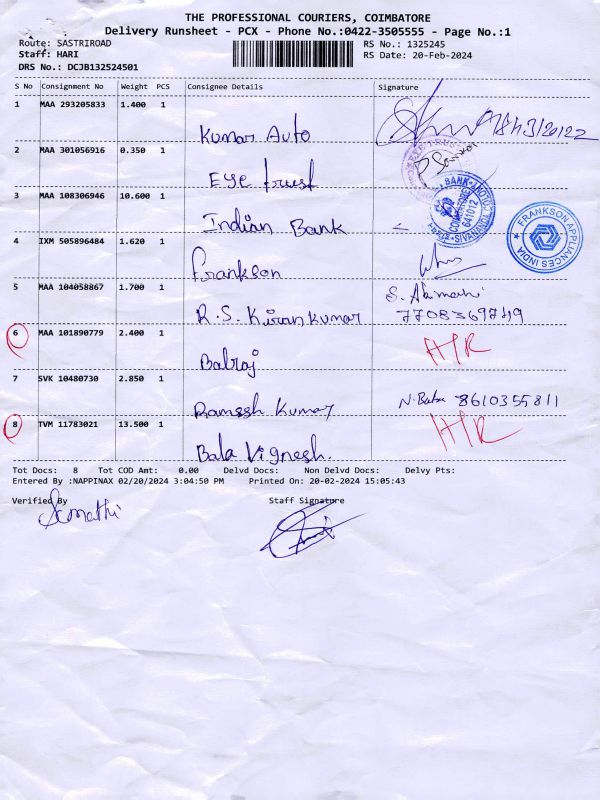 THE PROFESSIONAL COURIERS, COIMBATORE
Delivery Runsheet - PCX - Phone No.:0422-3505555 - Page No.:1
Route: SASTRIROAD RS No.: 1325245
Staff: HARI RS Date: 20-Feb-2024
DRS No.: DCJB132524501
S No Consignment No Weight PCS Consignee Details Signature
1 MAA 293205833 1.400 1
Kumar Auto
2 MAA 301056916 0.350 1
Eye trust
3 MAA 108306946 10.600 1
Indian Bank
4 IXM 505896484 1.620 1
FRANKSON APPLIANCES INDIA
Frankson
5 MAA 104058867 1.700 1
R.S. Kiran Kumar 7708369749
6 MAA 101890779 2.400 1
Balraj
7 SVK 10480730 2.850 1
Ramesh Kumar 8610355811
8 TVM 11783021 13.500 1
Bala Vignesh.
Tot Docs: 8 Tot COD Amt: 0.00 Delvd Docs: Non Delvd Docs: Delvy Pts:
Entered By :NAPPINAX 02/20/2024 3:04:50 PM Printed On: 20-02-2024 15:05:43
Verified By Staff Signature